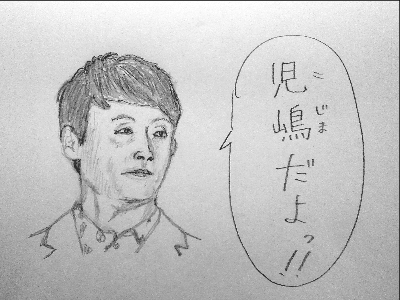 児嶋だよっ!!
こじま